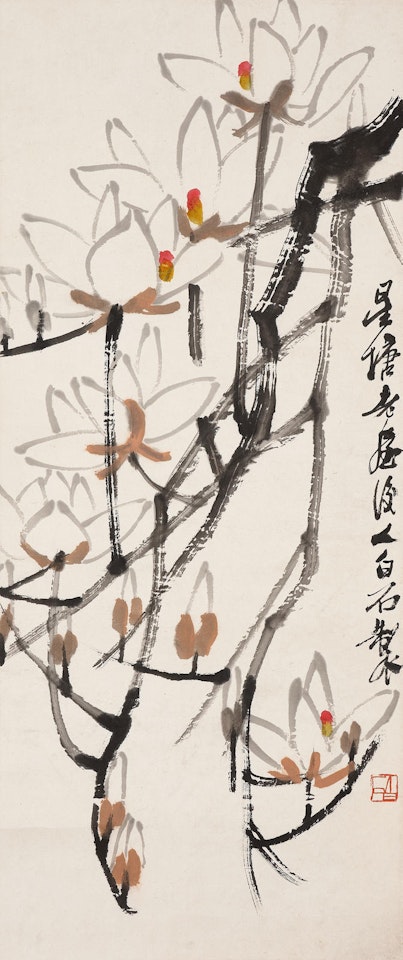 星塘老屋後人白石製